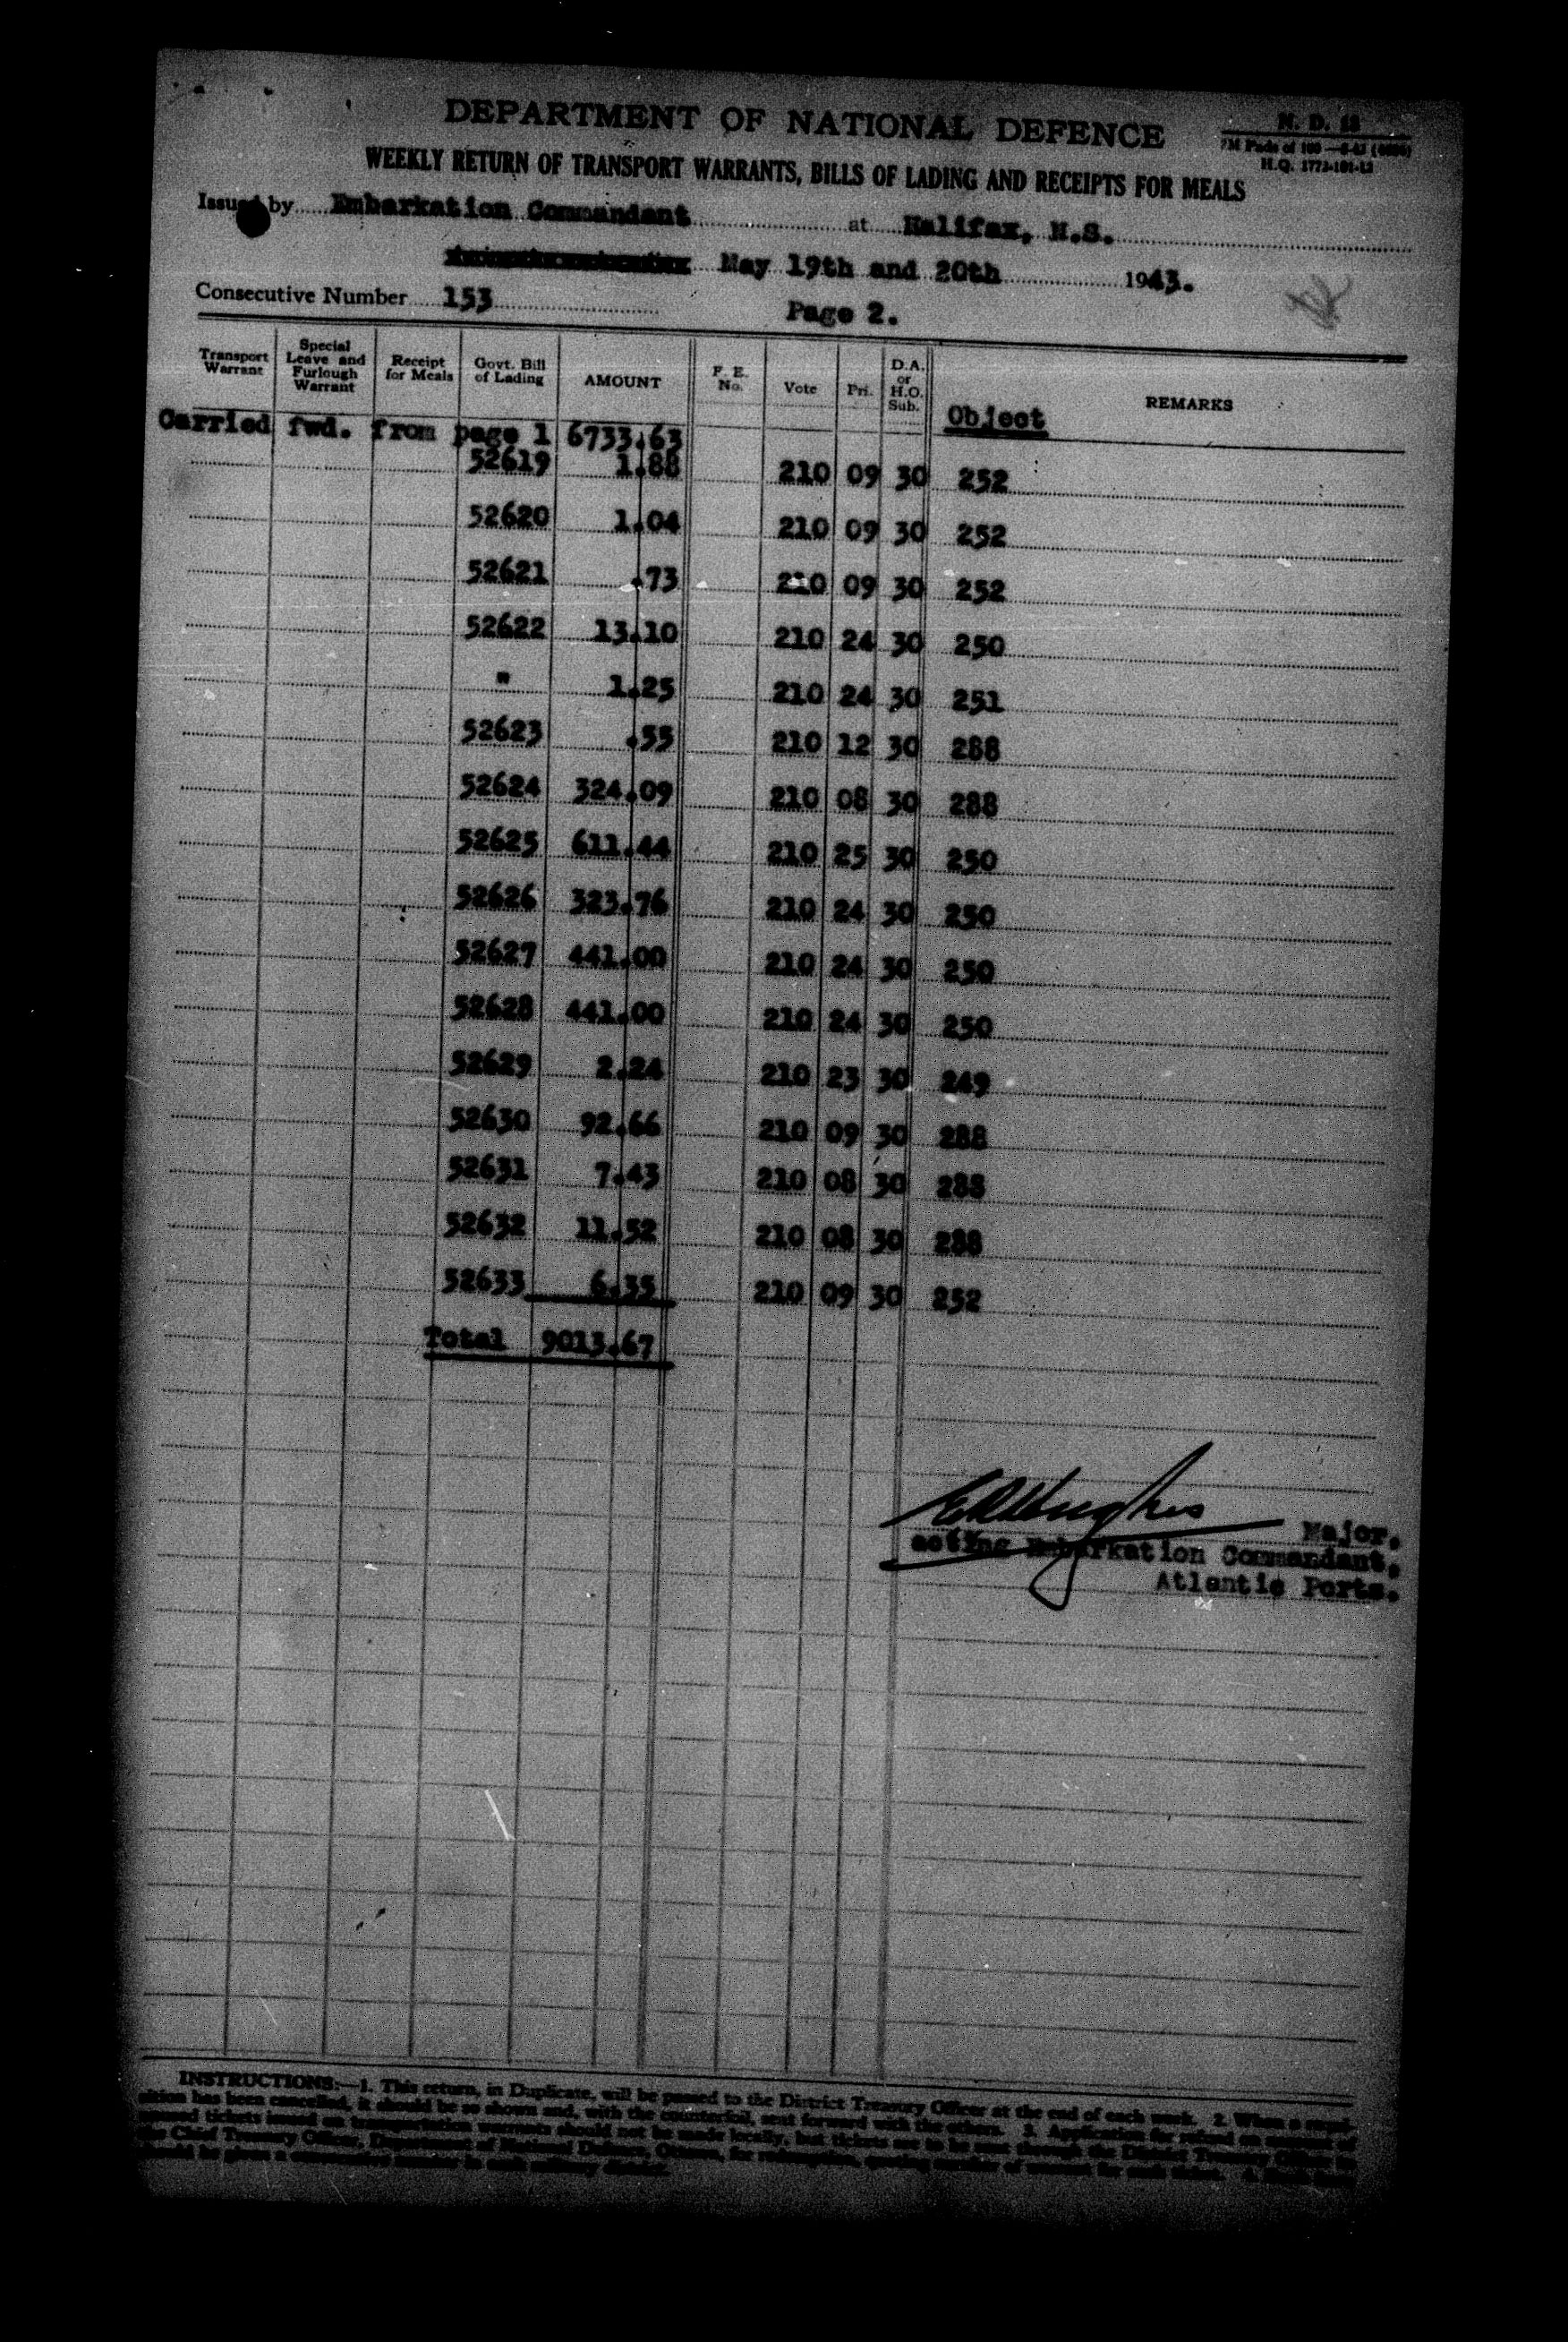 DEPARTMENT OF NATIONAL DEFENCE
N. D. 18
H.Q. 1772-101-12
WEEKLY RETURN OF TRANSPORT WARRANTS, BILLS OF LADING AND RECEIPTS FOR MEALS
Issued by Embarkation Commandant at Halifax, N.S.
May 19th and 20th 1943.
Consecutive Number 153 Page 2.
Transport Warrant Special Leave and Furlough Warrant Receipt for Meals Govt. Bill of Lading AMOUNT F. E. No. Vote Pri. D.A. or H.O. Sub. Object REMARKS
Carried fwd. from page 1 6733.63
52619 1.88 210 09 30 252
52620 1.04 210 09 30 252
52621 .73 210 09 30 252
52622 13.10 210 24 30 250
" 1.25 210 24 30 251
52623 .55 210 12 30 288
52624 324.09 210 08 30 288
52625 611.44 210 25 30 250
52626 323.76 210 24 30 250
52627 441.00 210 24 30 250
52628 441.00 210 24 30 250
52629 2.24 210 23 30 249
52630 92.66 210 09 30 288
52631 7.43 210 08 30 288
52632 11.52 210 08 30 288
52633 6.35 210 09 30 252
Total 9013.67
Hughes Major,
acting Embarkation Commandant,
Atlantic Ports.
INSTRUCTIONS:—1. This return, in Duplicate, will be passed to the District Treasury Officer at the end of each week. 2. When a
has been cancelled, it should be so shown and, with the counterfoil, sent forward with the others. 3. Application for refund on account of
tickets issued on transportation warrants should not be made locally, but tickets are to be sent through the District Treasury Officer, to
the Chief Treasury Officer, Department of National Defence, Ottawa, for
should be given a consecutive number in each military district.